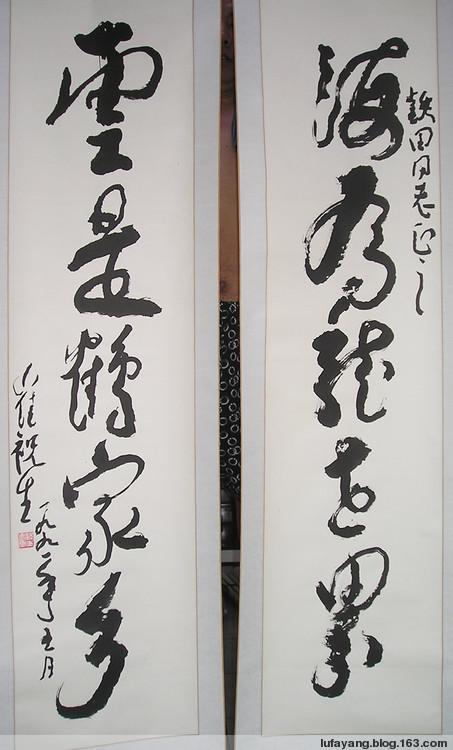 鉄田同志正之
海为龙世界
雲是鶴家乡
崔祝生一九九二年五月
lufayang.blog.163.com